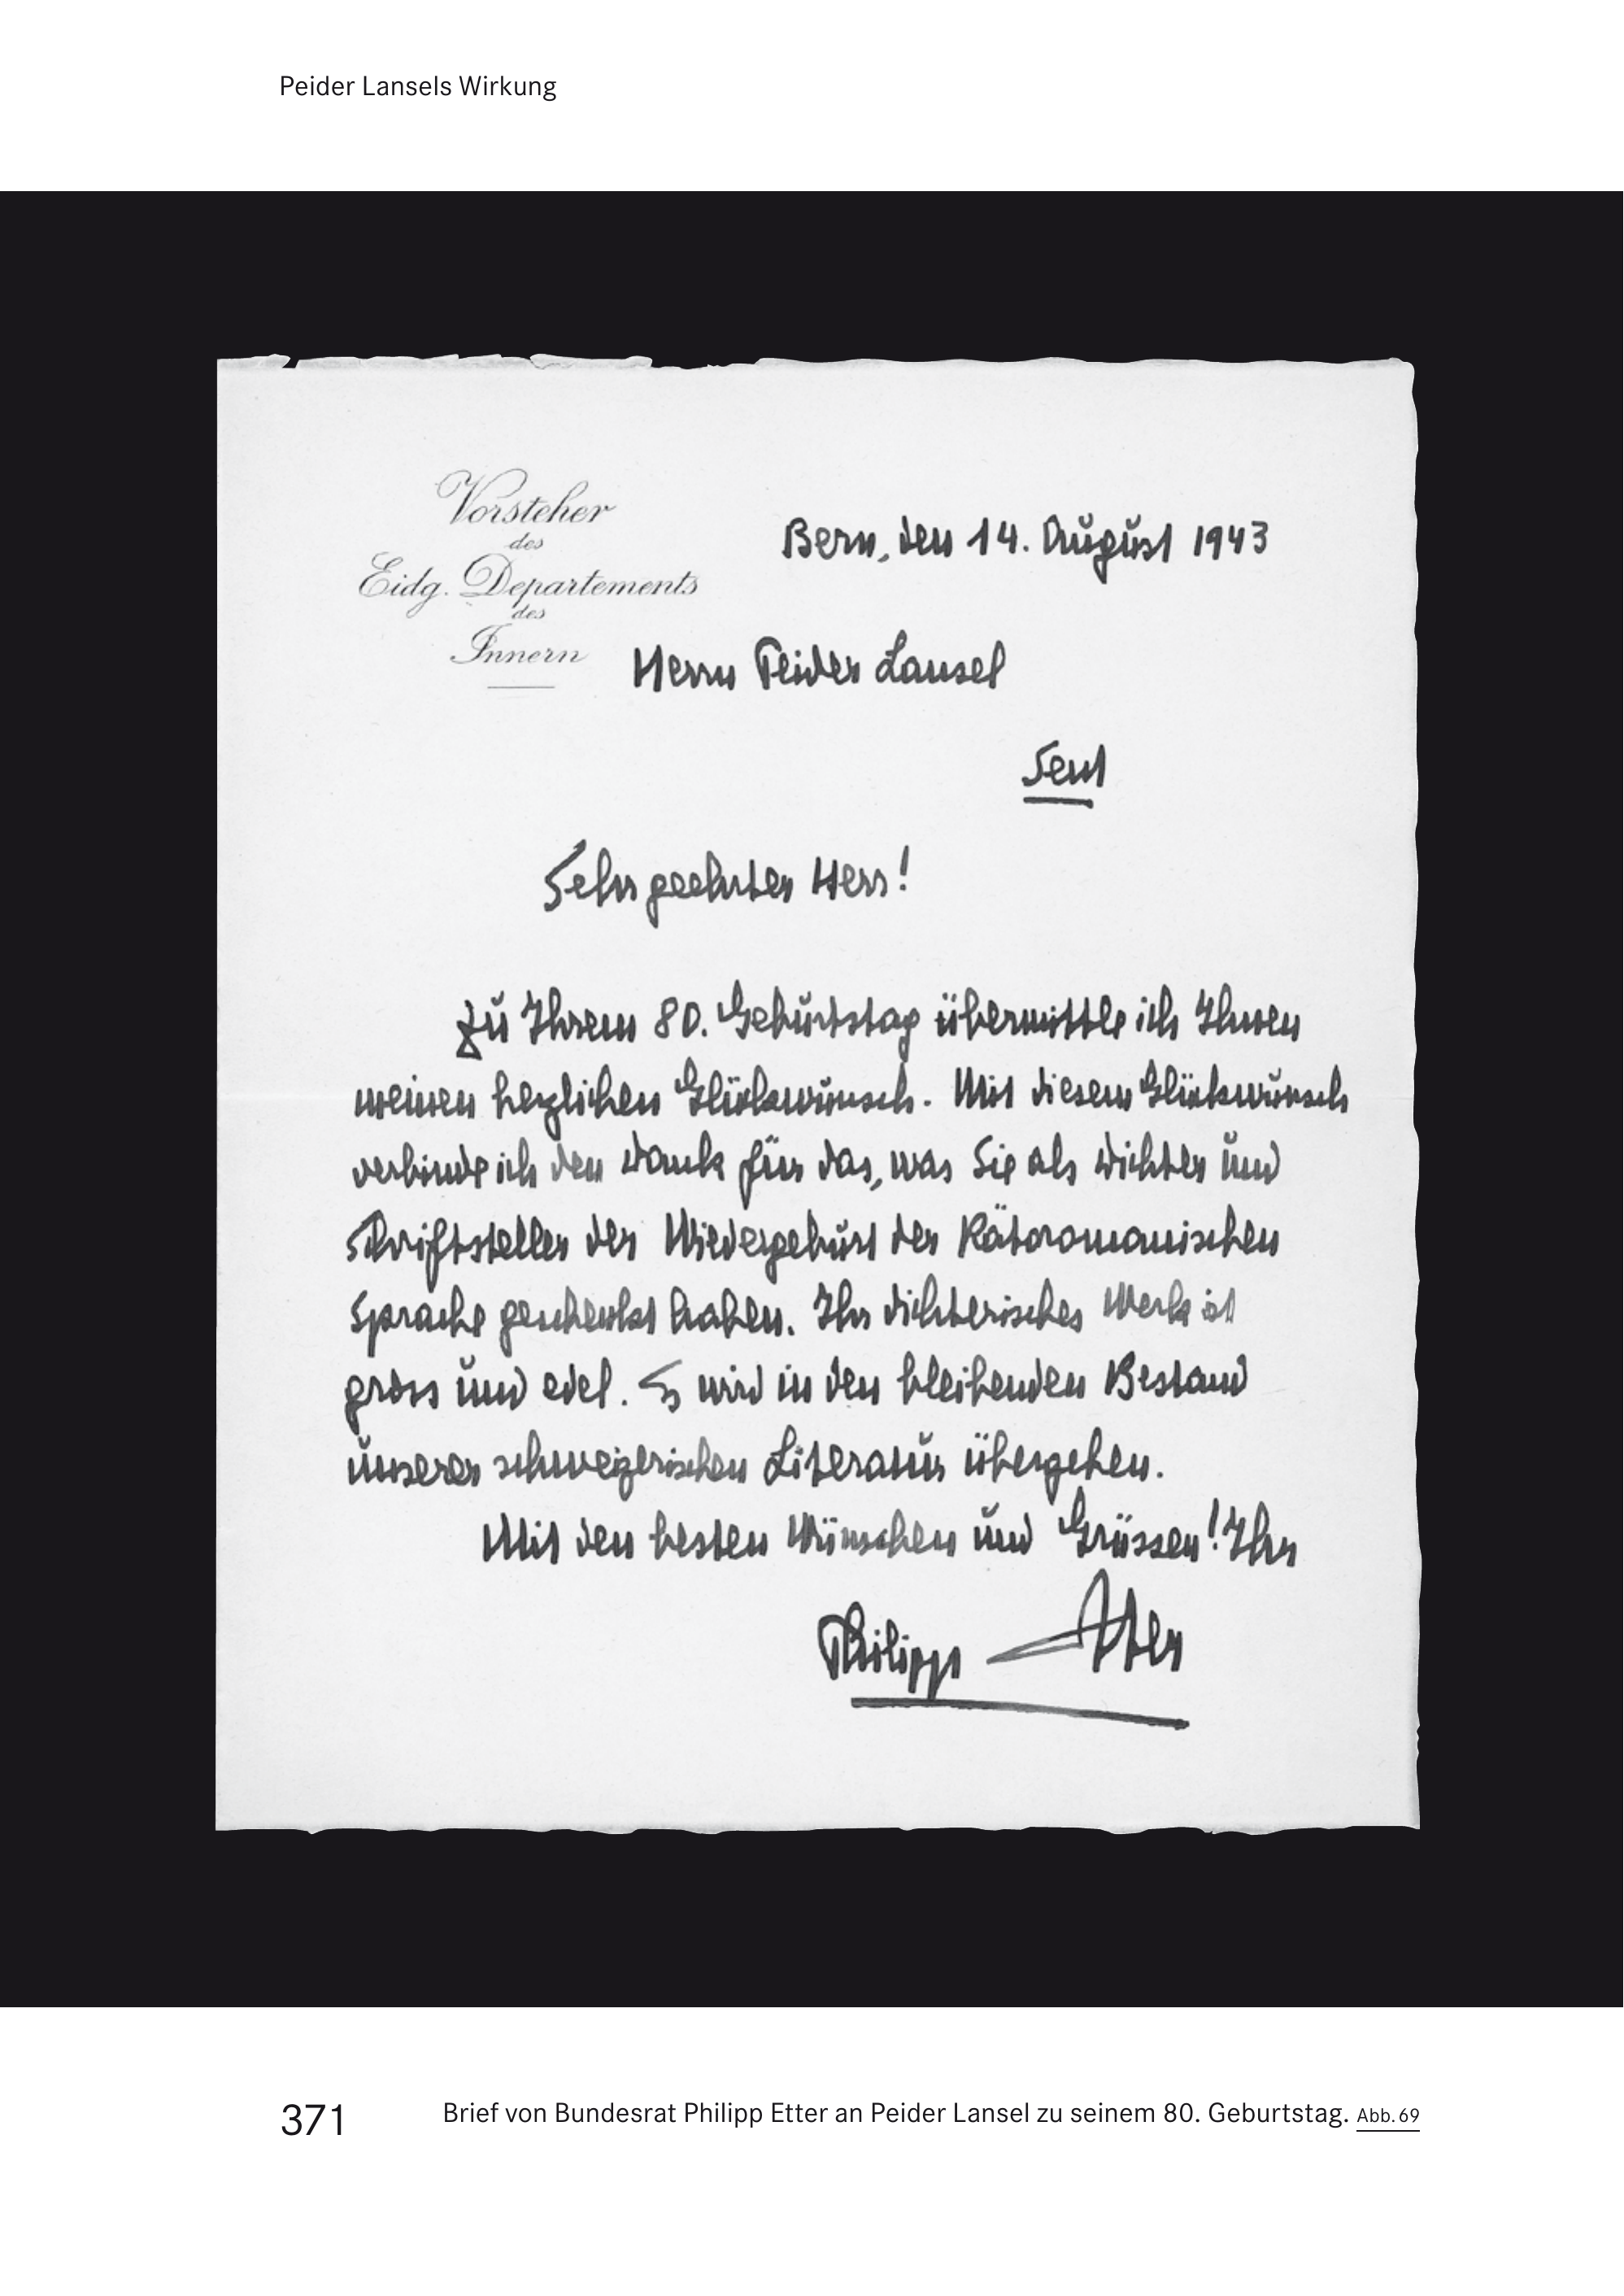 Peider Lansels Wirkung
Vorsteher
des
Eidg. Departements
des
Innern
Bern, den 14. August 1943
Herrn Peider Lansel
Sent
Sehr geehrter Herr!
Zu Ihrem 80. Geburtstag übermittle ich Ihnen
meinen herzlichen Glückwunsch. Mit diesem Glückwunsch
verbinde ich den Dank für das, was Sie als Dichter und
Schriftsteller der Wiedergeburt der Rätoromanischen
Sprache geschenkt haben. Ihr dichterisches Werk ist
gross und edel. Es wird in den bleibenden Bestand
unserer schweizerischen Literatur übergehen.
Mit den besten Wünschen und Grüssen! Ihr
Philipp Etter
371
Brief von Bundesrat Philipp Etter an Peider Lansel zu seinem 80. Geburtstag. Abb. 69